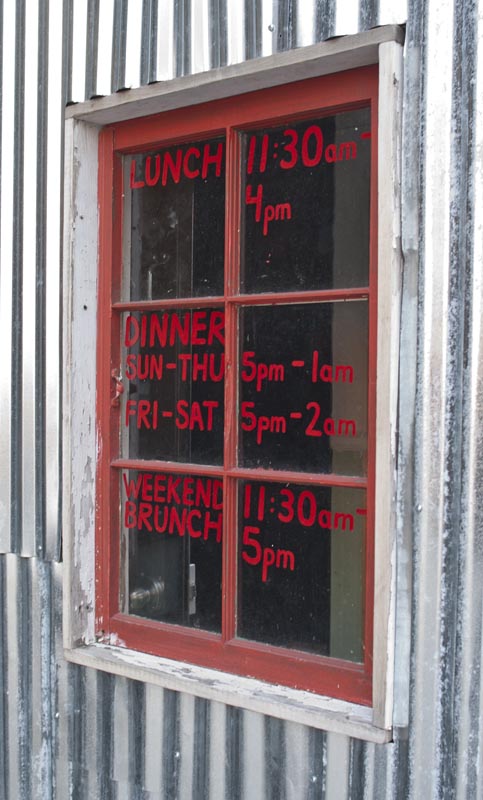 LUNCH 11:30am-
4pm
DINNER
SUN-THU 5pm-1am
FRI-SAT 5pm-2am
WEEKEND 11:30am-
BRUNCH 5pm